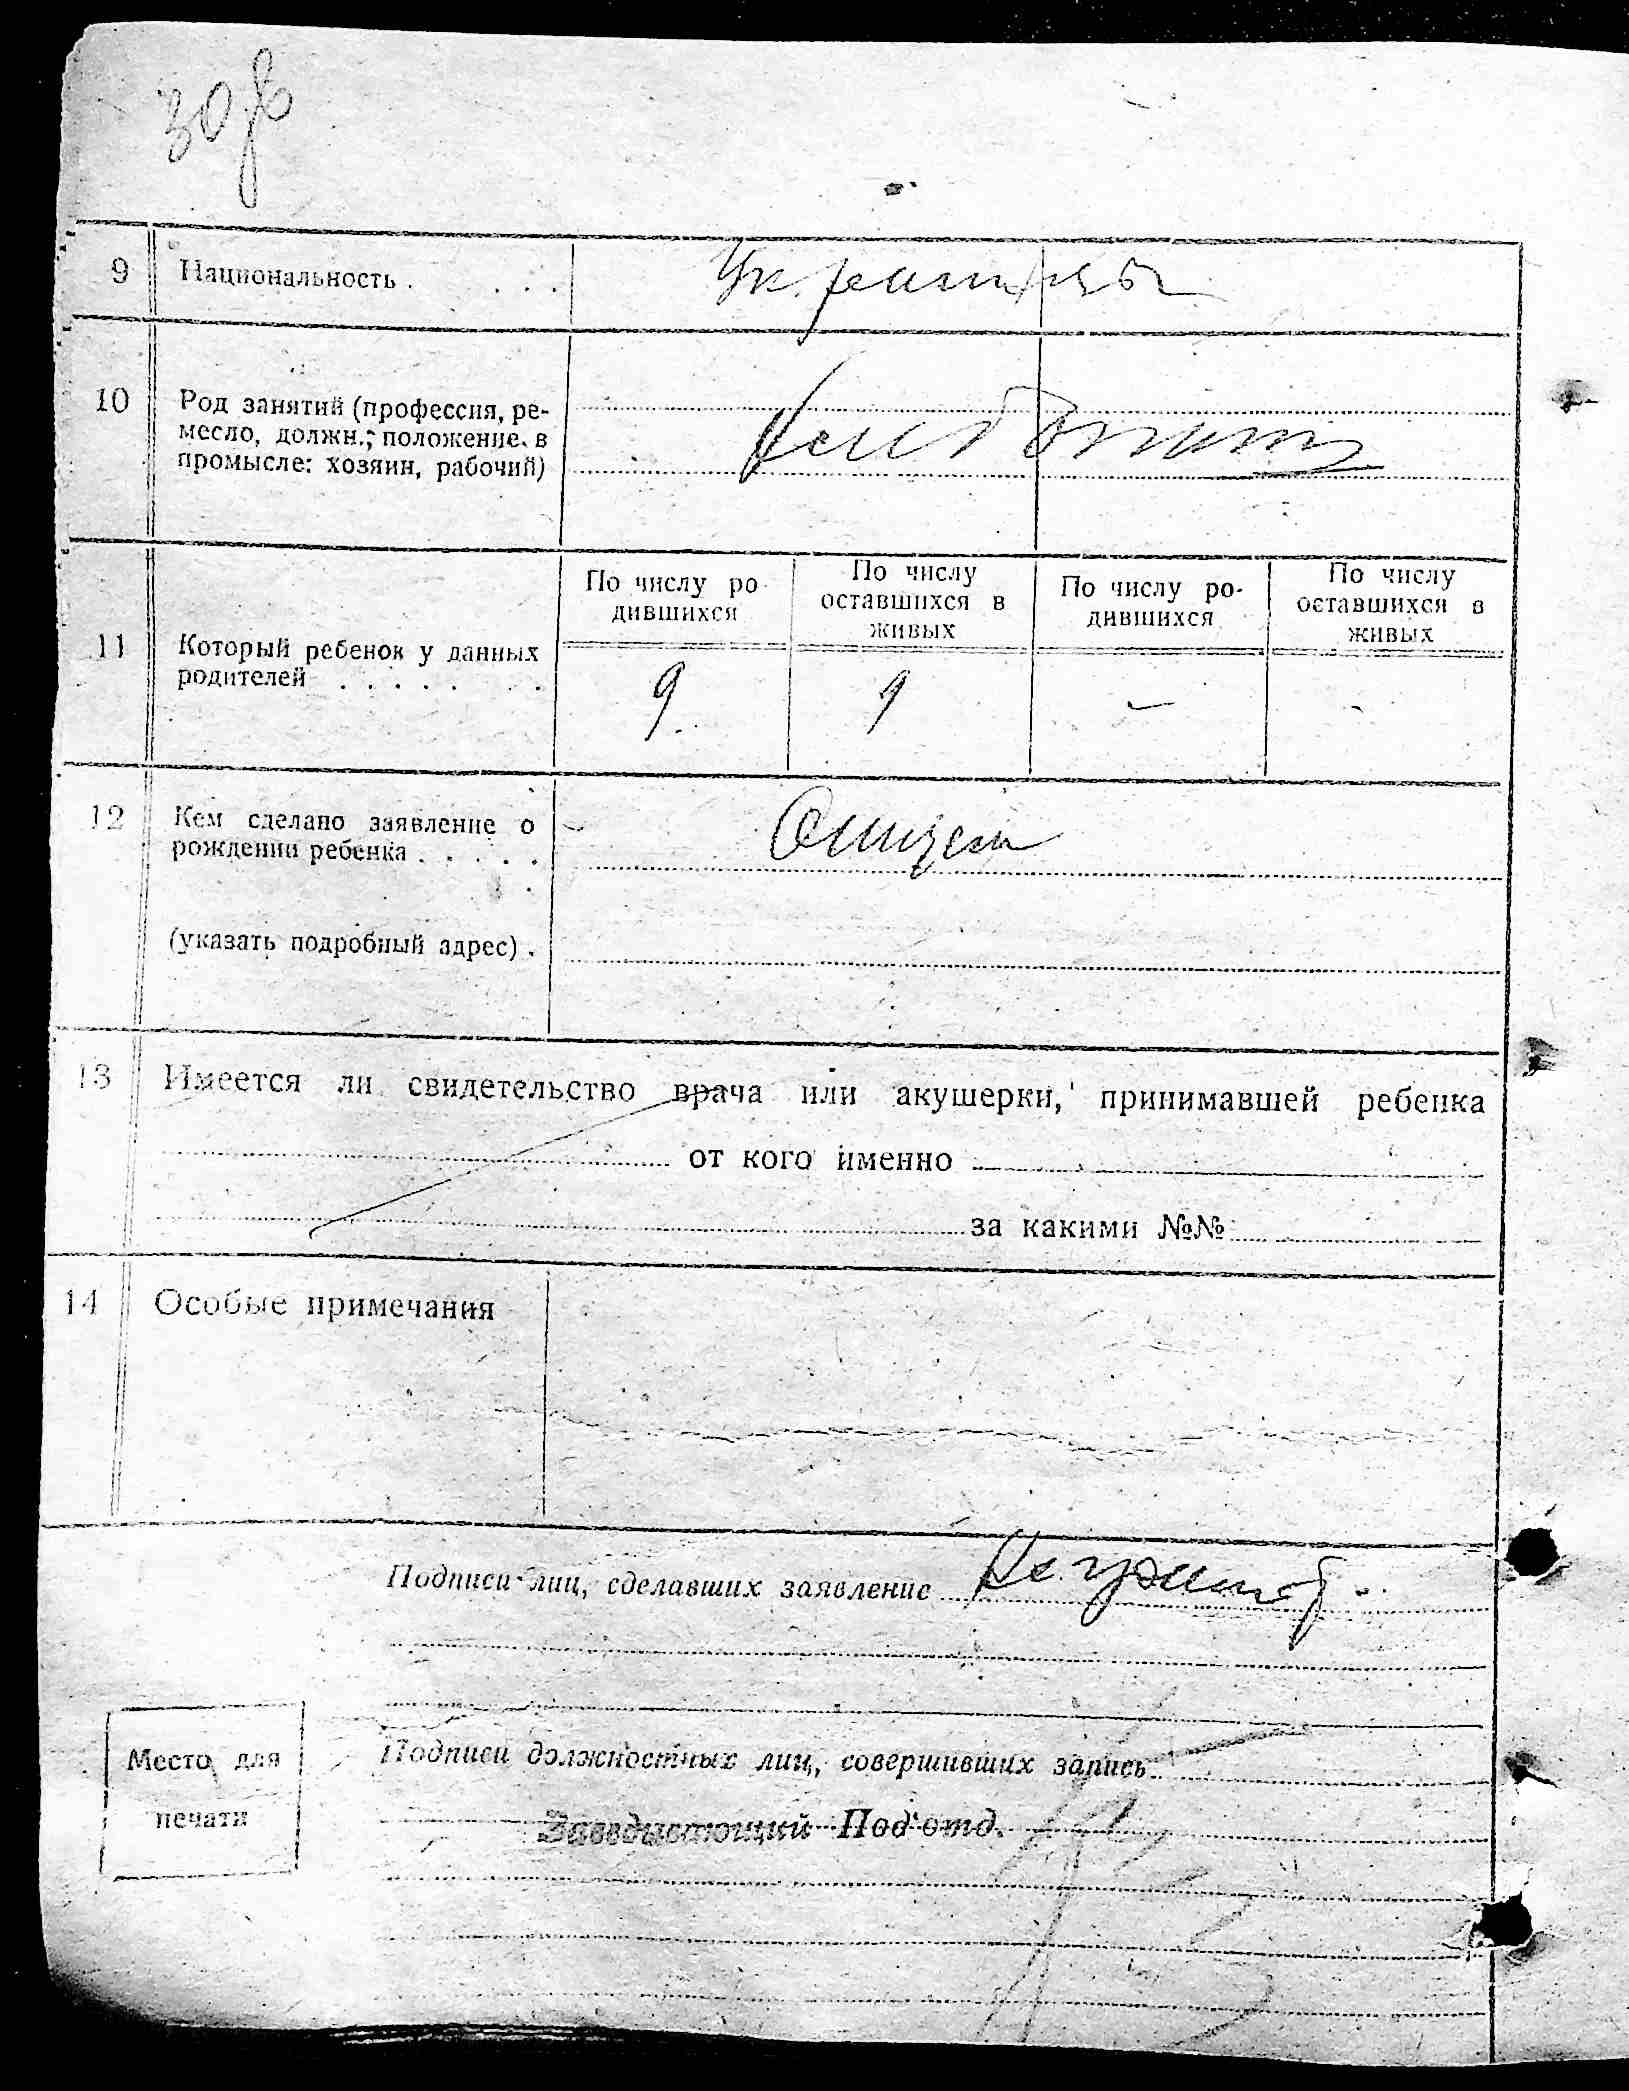 30
9 Национальность . . . . Украинцы
10 Род занятий (профессия, ре-
месло, должн.; положение в
промысле: хозяин, рабочий)
По числу ро-
дившихся
По числу
оставшихся в
живых
По числу ро-
дившихся
По числу
оставшихся в
живых
11 Который ребенок у данных
родителей . . . . . . .
9 9 - -
12 Кем сделано заявление о
рождении ребенка . . . . . Отцем
(указать подробный адрес) .
13 Имеется ли свидетельство врача или акушерки, принимавшей ребенка
от кого именно
за какими №№
14 Особые примечания
Подписи лиц, сделавших заявление
Место для
печати
Подписи должностных лиц, совершивших запись
Заведывающий Под'отд.